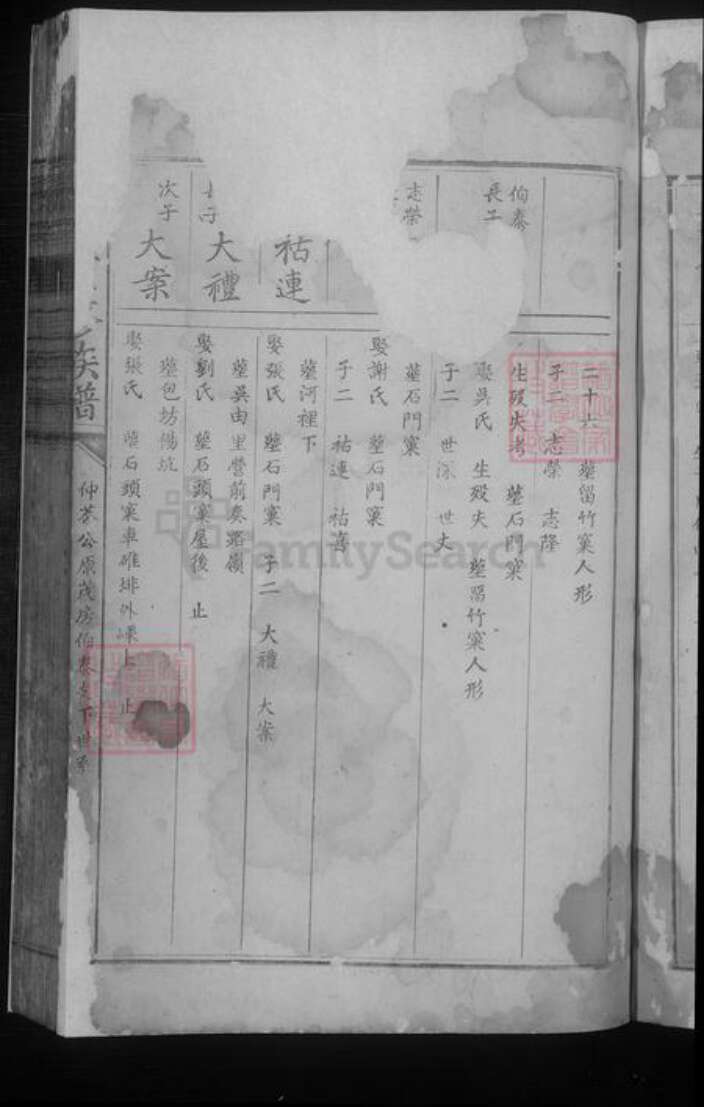 伯泰
長子
志榮
祜連
大禮
次子
大案
二十六 塟留竹窠人形
子二 志榮 志隆
生歿失考 塟石門窠
娶吳氏 生歿失 塟留竹窠人形
子二 世深 世夫
塟石門窠
娶謝氏 塟石門窠
子二 祜連 祜喜
塟河裡下
娶張氏 塟石門窠 子二 大禮 大案
塟吳由里營前奏路嶺
娶劉氏 塟石頭窠屋後 止
塟包坊陽坑
娶張氏 塟石頭窠車碓排外 上 止
族譜
仲 公原茂房伯泰 下世系
FamilySearch